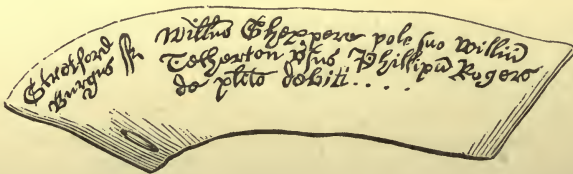 Stretford
Burgus
Willm̃s Shexpere pole suo Willm̃
Tetherton v̉sus Phillipũ Rogers
de pl̃ito debiti.....